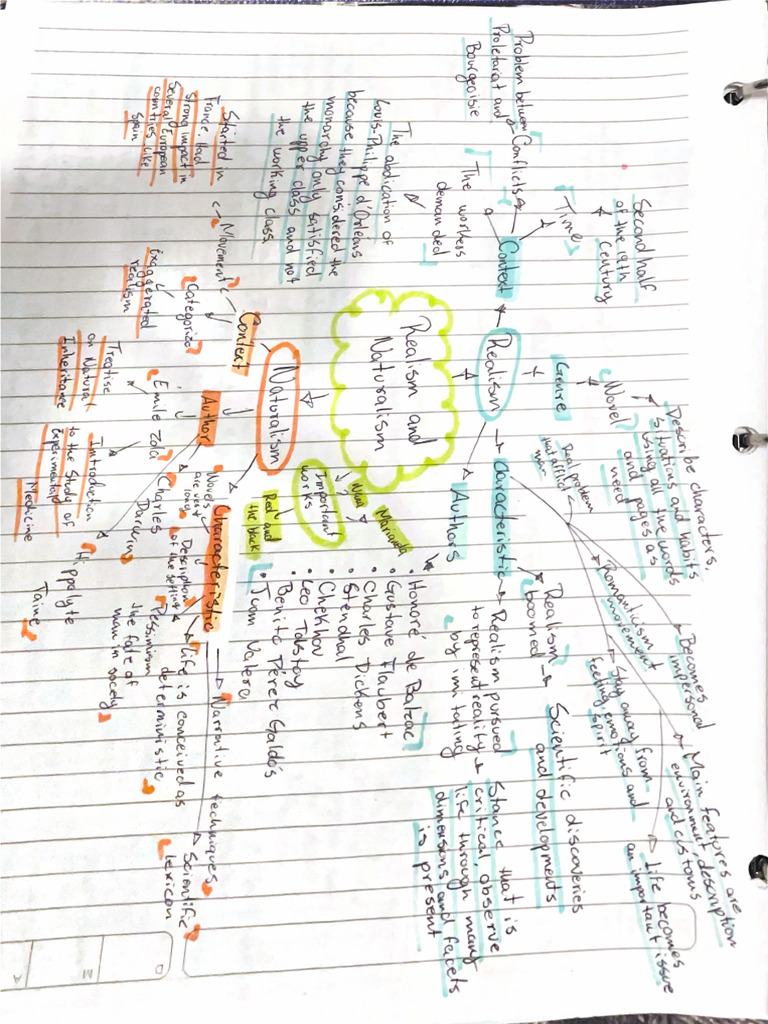 Realism and
Naturalism
Realism
Context
Time
Second half
of the 19th
Century
Conflicts
Problem between
Proletariat and
Bourgeoisie
The workers
demanded
The abdication of
Louis-Philippe d'Orleans
because they considered the
monarchy only satisfied
the upper class and not
the working class.
Genre
Novel
Describe characters,
situations and habits
using all the words
and pages as
need
Characteristic
Real problem
that afflict
man
Becomes
impersonal
Main features are
environment description
and customs
Romanticism
movement
Stay away from
feeling, emotions and
spirit
Life becomes
an important issue
Realism
boomed
Scientific discoveries
and developments
Realism pursued
to represent reality
by imitating
Stance that is
critical observe
life through many
dimensions and facets
is present
Authors
• Honoré de Balzac
• Gustave Flaubert
• Charles Dickens
• Stendhal
• Chekhov
• Leo Tolstoy
• Benito Pérez Galdós
• Juan Valera
Important
works
Nana
Marianela
Red and
the black
Naturalism
Context
Movement
Started in
France. Had
strong impact in
several European
countries like
Spain.
Categorize
Exaggerated
realism
Author
Emile Zola
Treatise
on Natural
Inheritance
Introduction
to the Study of
Experimental
Medicine
Charles
Darwin
Hippolyte
Taine
Characteristic
Novels
are very
long
Description
of the setting
Pessimism
the fate of
man in society
Life is conceived as
deterministic
Narrative techniques
Scientific
Lexicon
D
M